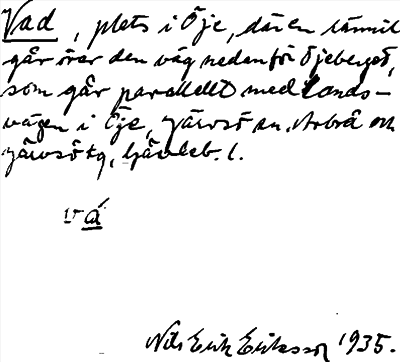 Vad, plats i Öje, där en rännil
går över den väg nedanför Öjeberget,
som går parallellt med lands-
vägen i Öje, Järvsö sn, Arbrå och
Järvsö tg, Gävleb. l.
vá
Nils Erik Eriksson 1935.